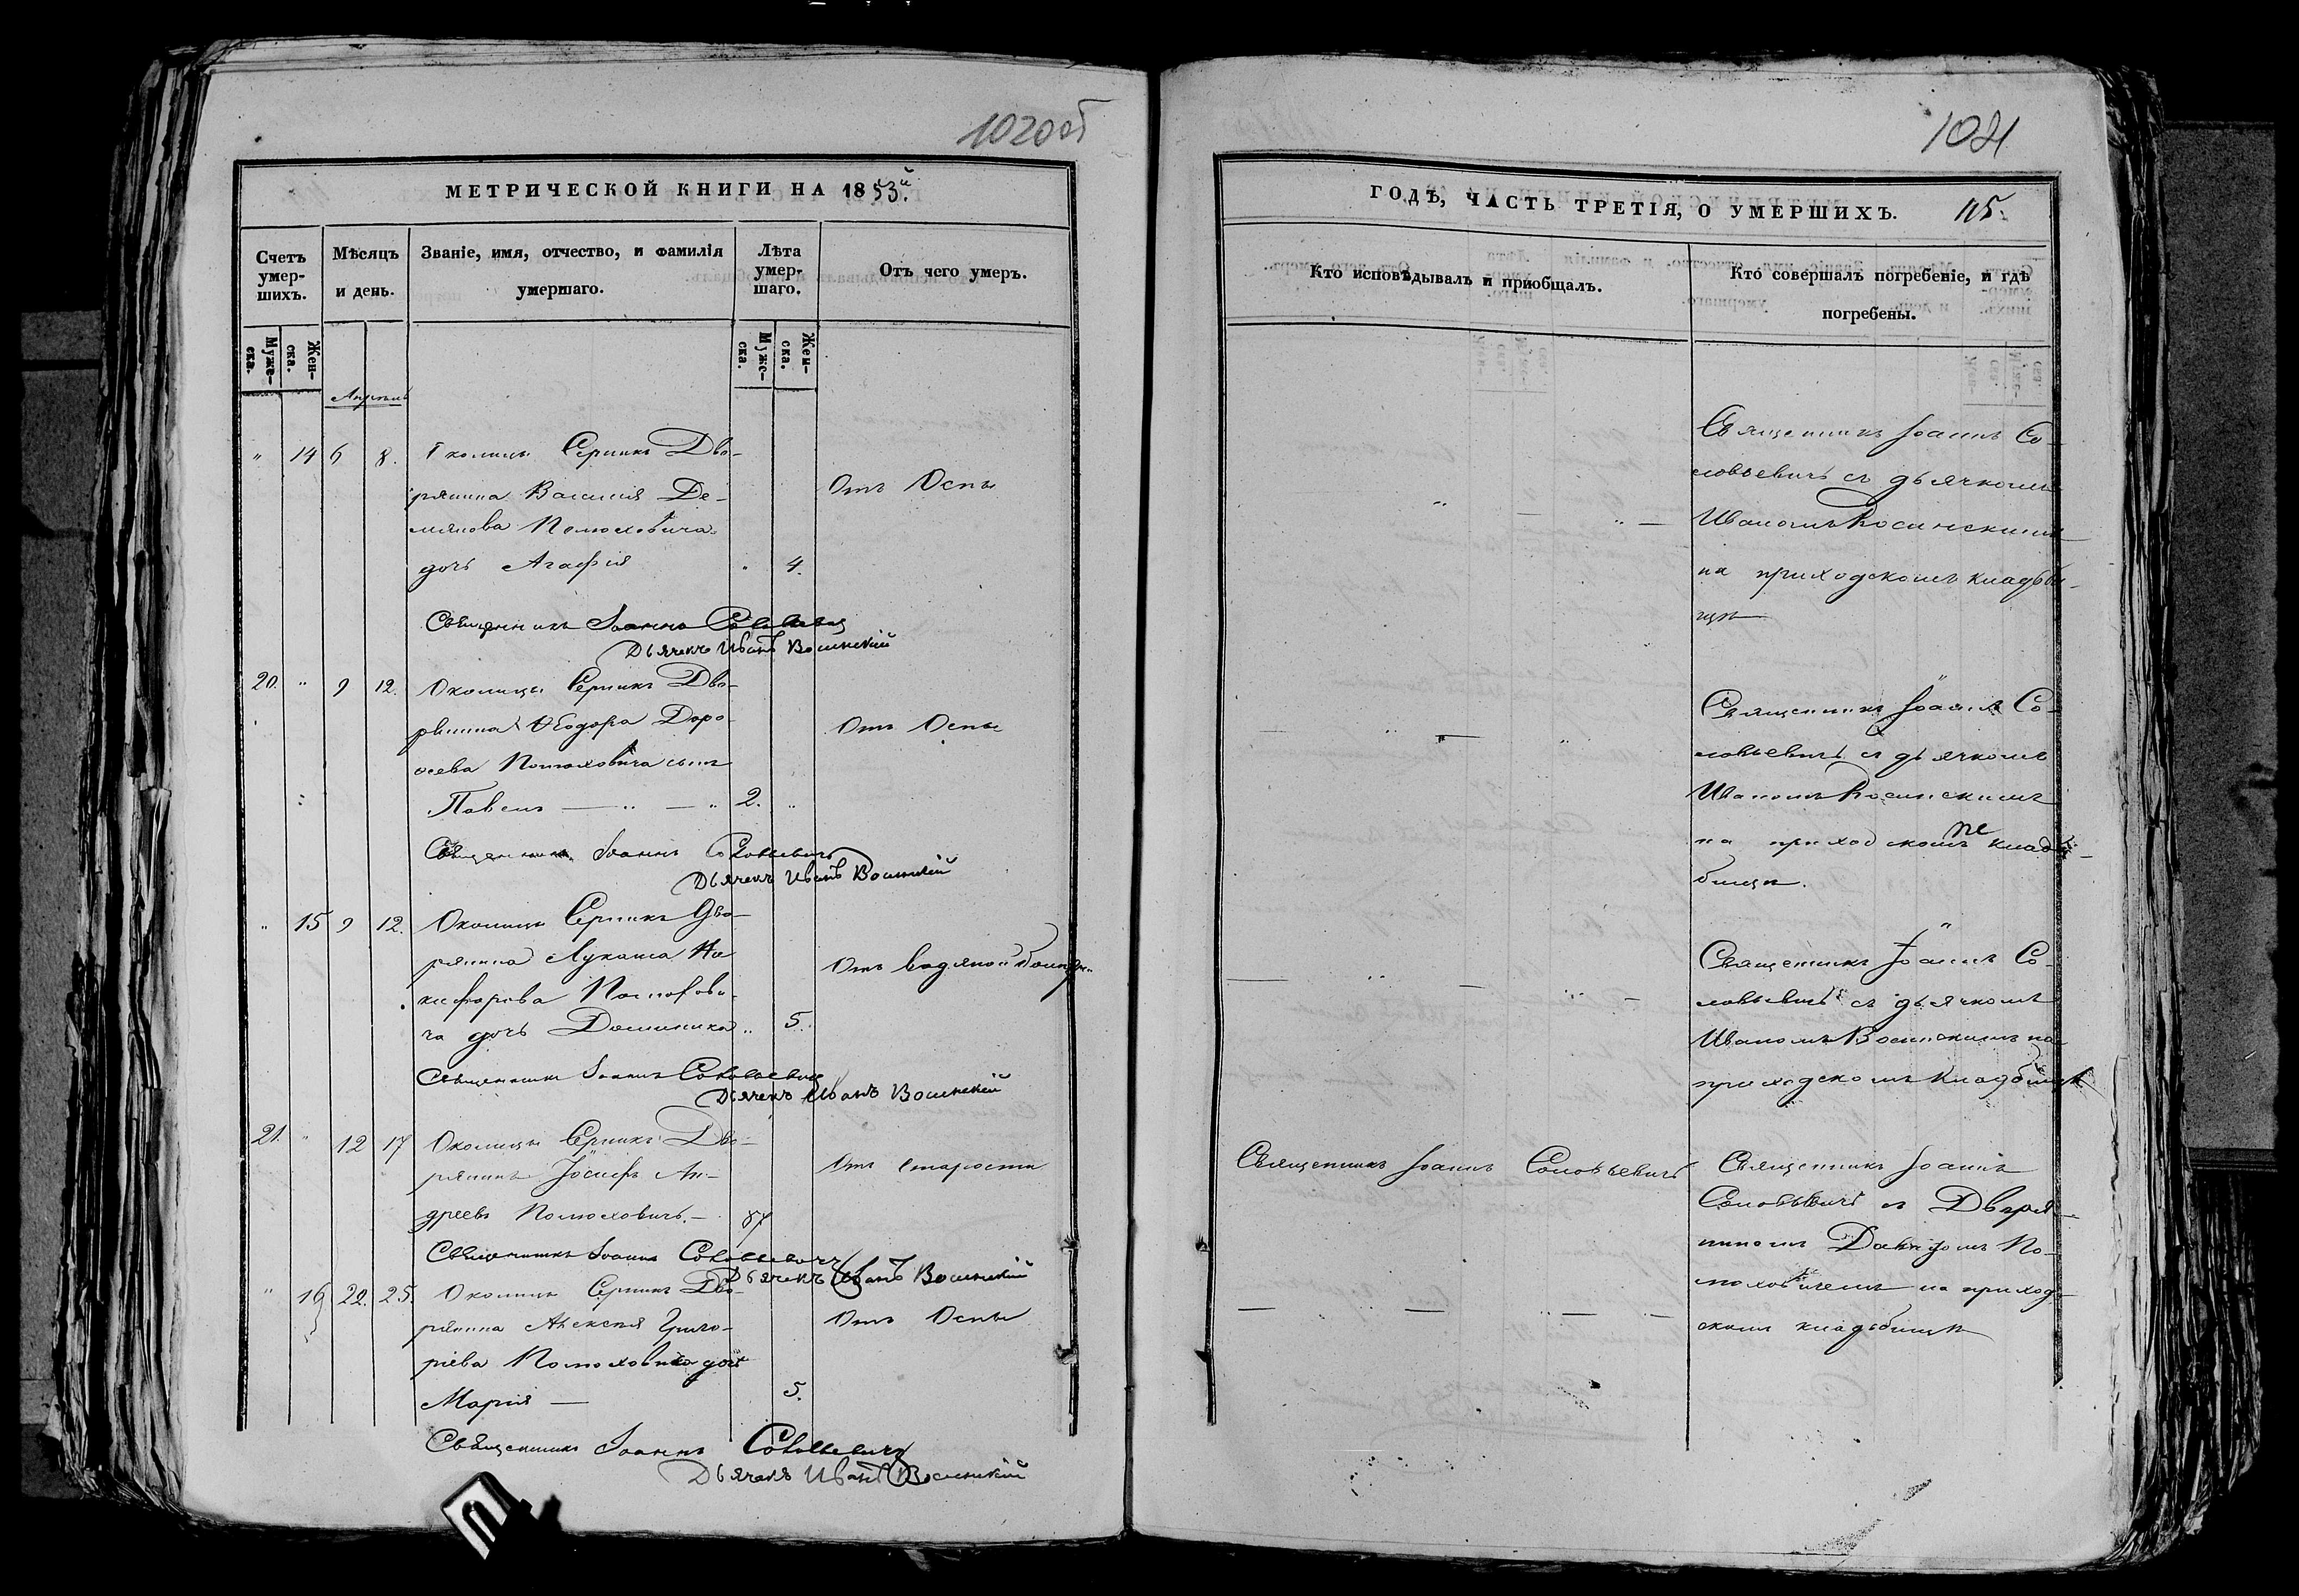 1020 об
МЕТРИЧЕСКОЙ КНИГИ НА 1853й.
Счетъ умер-шихъ.
Мѣсяцъ и день.
Званіе, имя, отчество, и фамилія умершаго.
Лѣта умер-шаго.
Отъ чего умеръ.
Муже-ска.
Жен-ска.
Муже-ска.
Жен-ска.
Апрель
" 14 6 8. Околицы Серникъ Дво-
рянина Василія Де-
мянова Полюховича
дочь Агафія " 4.
Отъ Оспы
Священникъ Іоаннъ Соловьевичъ
Дьячекъ Иванъ Восинскій
20. " 9 12. Околицы Серникъ Дво-
рянина Ѳеодора Доро-
феева Полюховича сынъ
Павелъ — " — " 2. "
Отъ Оспы
Священникъ Іоаннъ Соловьевичъ
Дьячекъ Иванъ Восинскій
" 15 9 12. Околицы Серникъ Дво-
рянина Лукаша Ни
кифорова Полюхови-
ча дочь Доминика " 5.
Отъ водяной болезни
Священникъ Іоаннъ Соловьевичъ
Дьячекъ Иванъ Восинскій
21. " 12 17 Околицы Серникъ Дво-
рянинъ Іосифъ Ан-
дреевъ Полюховичъ. — 87
Отъ Старости
Священникъ Іоаннъ Соловьевичъ
Дьячекъ Иванъ Восинскій
" 16 22. 25. Околицы Серникъ Дво-
рянина Алексея Григо-
ріева Полюховича дочь
Марія — 5.
Отъ Оспы
Священникъ Іоаннъ Соловьевичъ
Дьячекъ Иванъ Восинскій
1021
ГОДЪ, ЧАСТЬ ТРЕТІЯ, О УМЕРШИХЪ. 115.
Кто исповѣдывалъ и приобщалъ.
Кто совершалъ погребеніе, и гдѣ погребены.
Священникъ Іоаннъ Со-
ловьевичъ съ дьячкомъ
Иваномъ Восинскимъ
на приходскомъ кладби-
щѣ
Священникъ Іоаннъ Со-
ловьевичъ съ дьячкомъ
Иваномъ Восинскимъ
на приходскомъ клад-
бищѣ.
Священникъ Іоаннъ Со-
ловьевичъ съ дьячкомъ
Иваномъ Восинскимъ на
приходскомъ кладбищѣ
Священникъ Іоаннъ Соловьевичъ
Священникъ Іоаннъ
Соловьевичъ съ Дворя-
ниномъ Давидомъ По-
люховичемъ на приход-
скомъ кладбищѣ